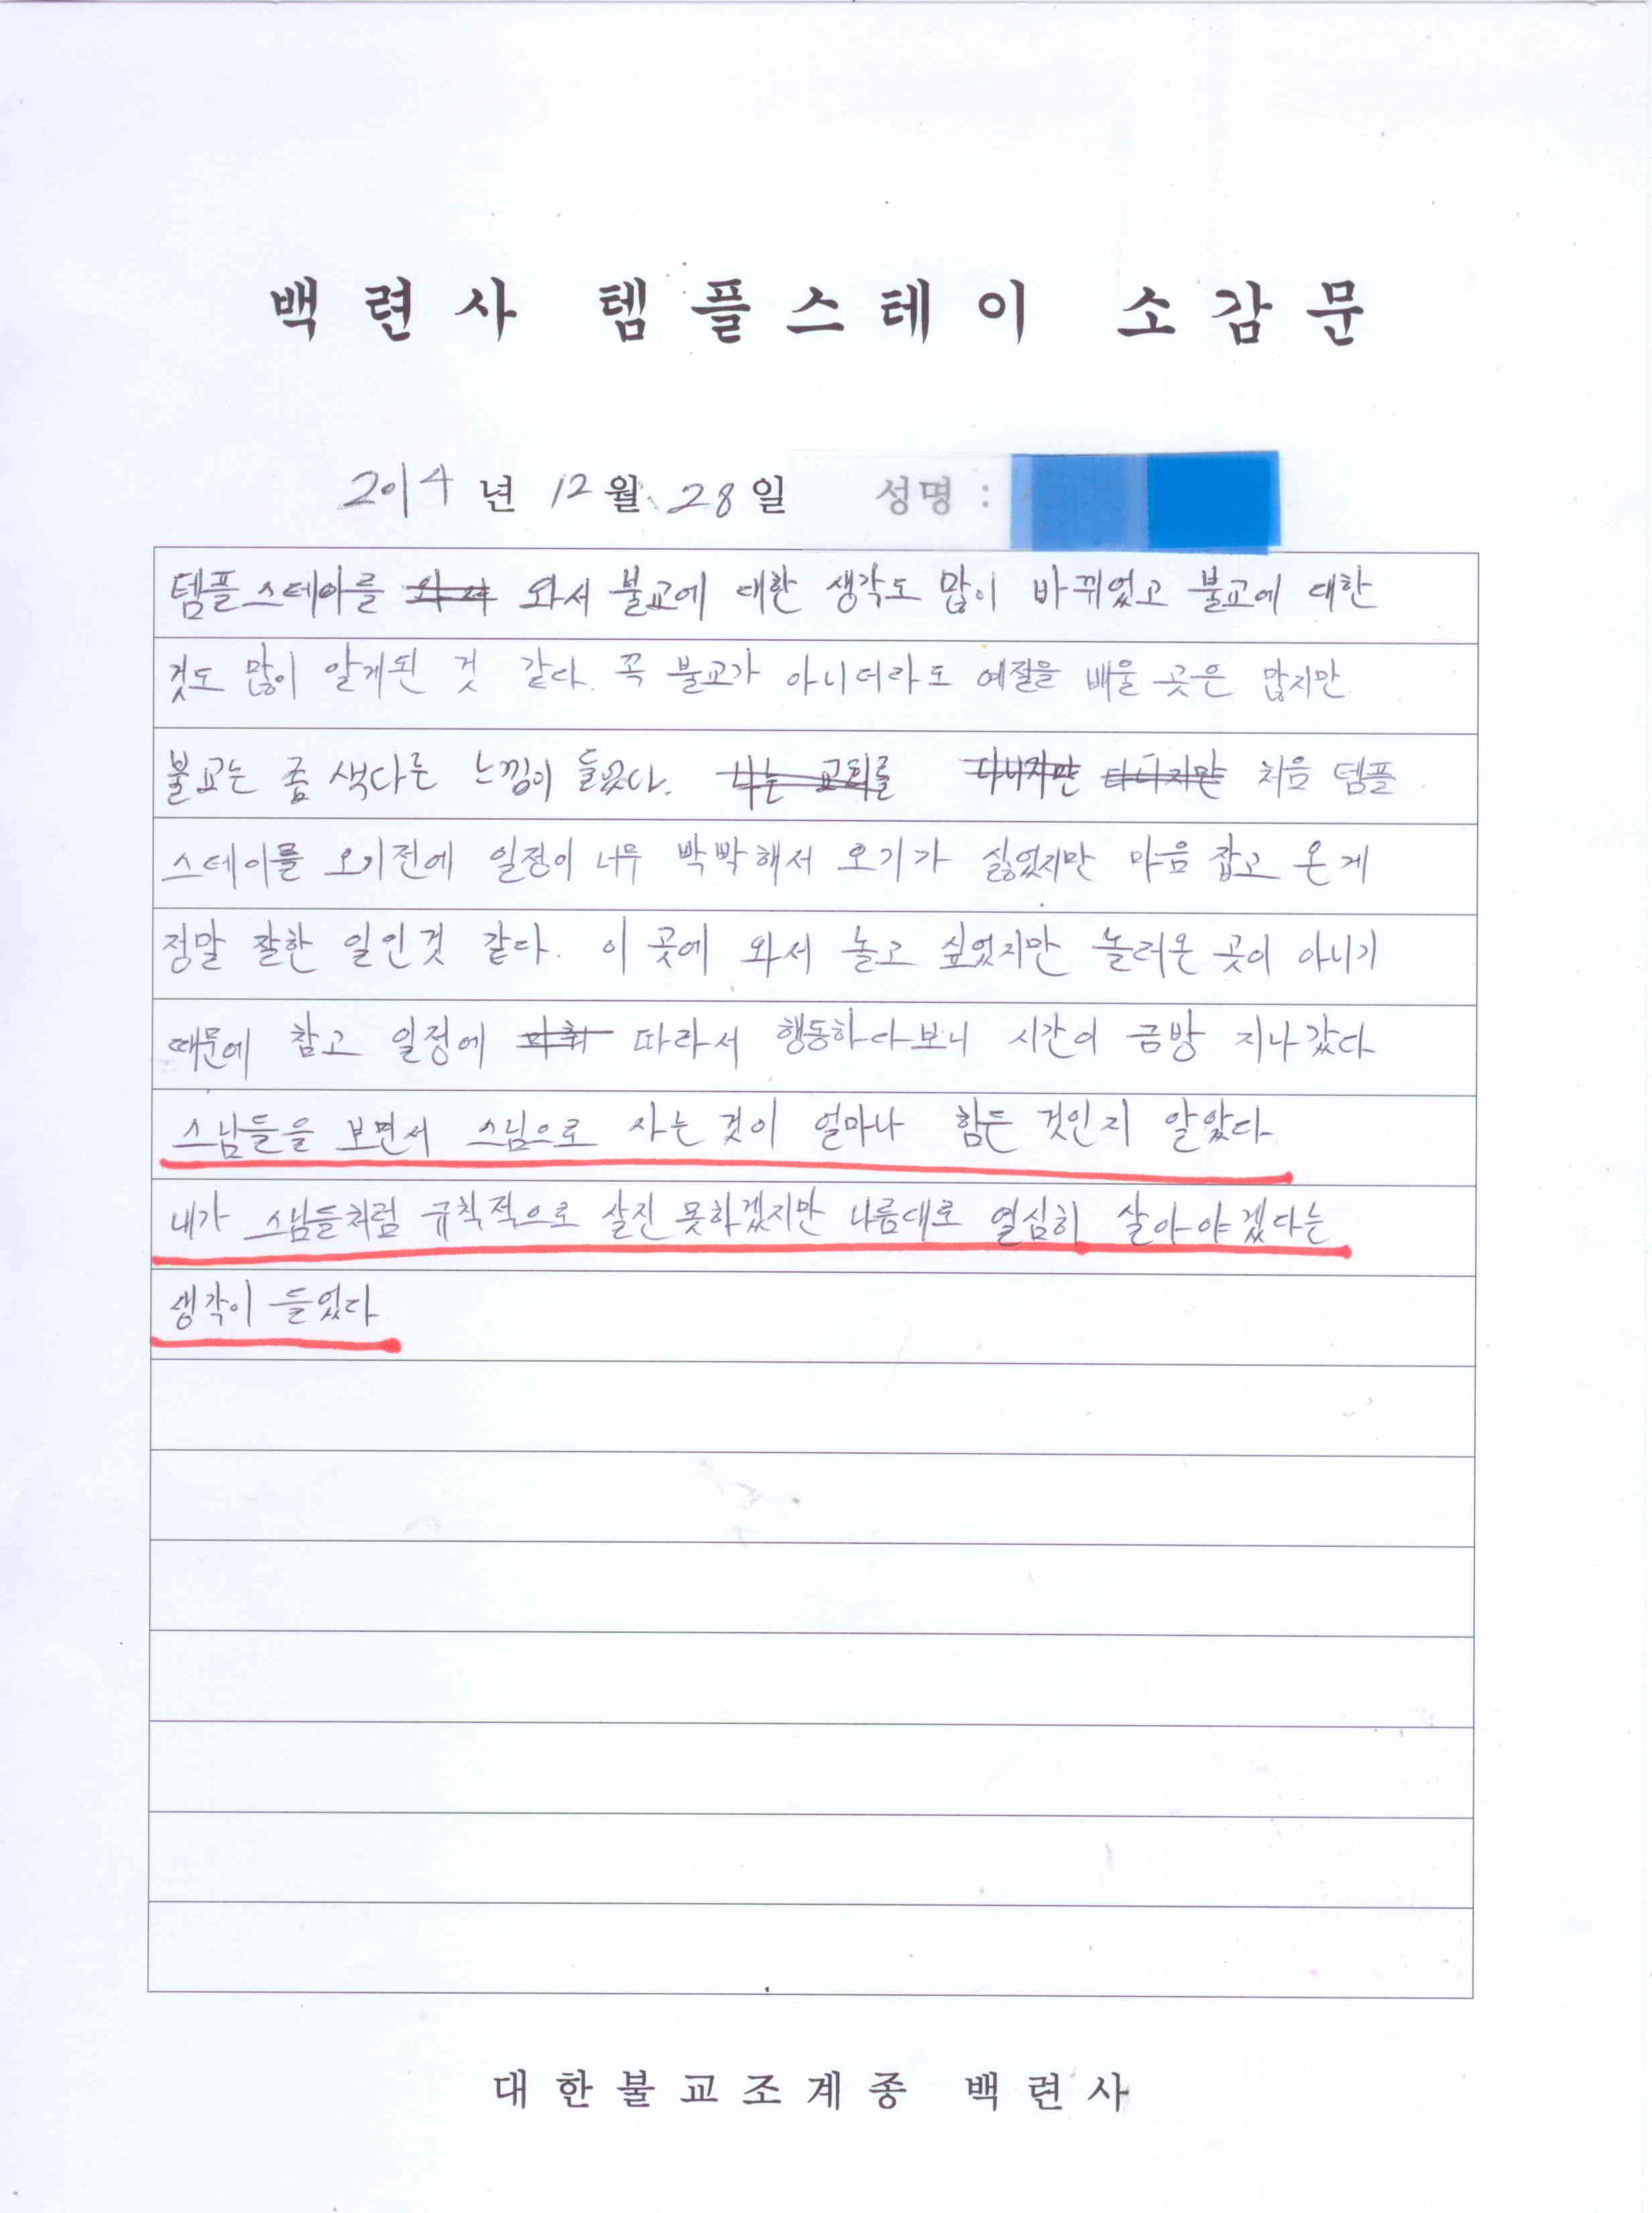 백련사 템플스테이 소감문
2014년 12월 28일 성명 :
템플스테이를 와서 와서 불교에 대한 생각도 많이 바뀌었고 불교에 대한
것도 많이 알게된 것 같다. 꼭 불교가 아니더라도 예절을 배울 곳은 많지만
불교는 좀 색다른 느낌이 들었다. 나는 교회를 다니지만 다니지만 처음 템플
스테이를 오기전에 일정이 너무 빡빡해서 오기가 싫었지만 마음 잡고 온게
정말 잘한 일인것 같다. 이 곳에 와서 놀고 싶었지만 놀러온 곳이 아니기
때문에 참고 일정에 마춰 따라서 행동하다보니 시간이 금방 지나갔다
스님들을 보면서 스님으로 사는 것이 얼마나 힘든 것인지 알았다.
내가 스님들처럼 규칙적으로 살진 못하겠지만 나름대로 열심히 살아야겠다는
생각이 들었다
대한불교조계종 백련사